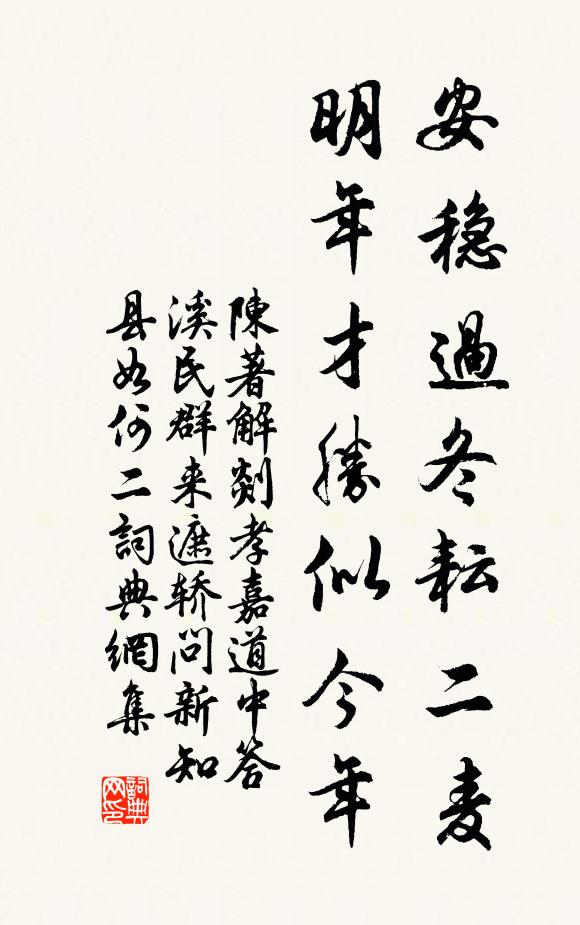 安穩過冬耘二麦
明年才勝似今年
陳著解剡孝嘉道中答
溪民群来遮轿问新知
县如何二詞典網集
詞典网印